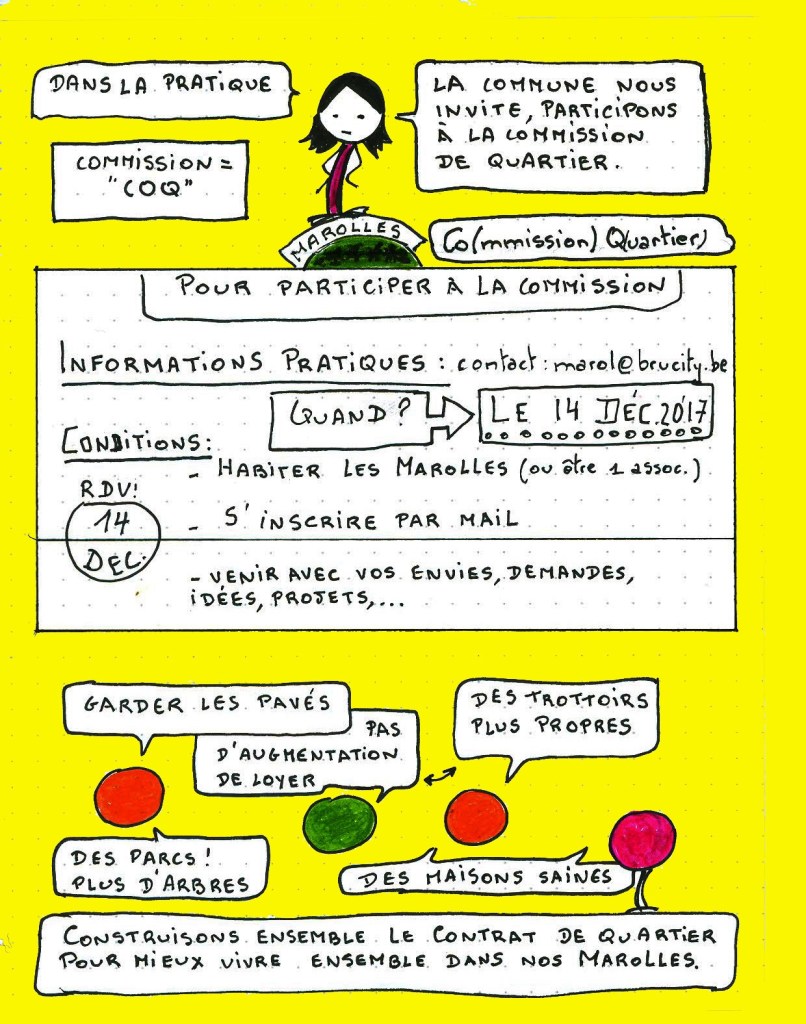 DANS LA PRATIQUE
LA COMMUNE NOUS
INVITE, PARTICIPONS
À LA COMMISSION
DE QUARTIER.
COMMISSION =
"COQ"
MAROLLES
Co(mmission) Q(uartier)
POUR PARTICIPER À LA COMMISSION
INFORMATIONS PRATIQUES : contact : marol@brucity.be
QUAND ?
LE 14 DÉC. 2017
CONDITIONS :
- HABITER LES MAROLLES (ou être 1 assoc.)
RDV!
14
DÉC.
- S'INSCRIRE PAR MAIL
- VENIR AVEC VOS ENVIES, DEMANDES,
IDÉES, PROJETS,...
GARDER LES PAVÉS
PAS
D'AUGMENTATION
DE LOYER
DES TROTTOIRS
PLUS PROPRES
DES PARCS !
PLUS D'ARBRES
DES MAISONS SAINES
CONSTRUISONS ENSEMBLE LE CONTRAT DE QUARTIER
POUR MIEUX VIVRE ENSEMBLE DANS NOS MAROLLES.